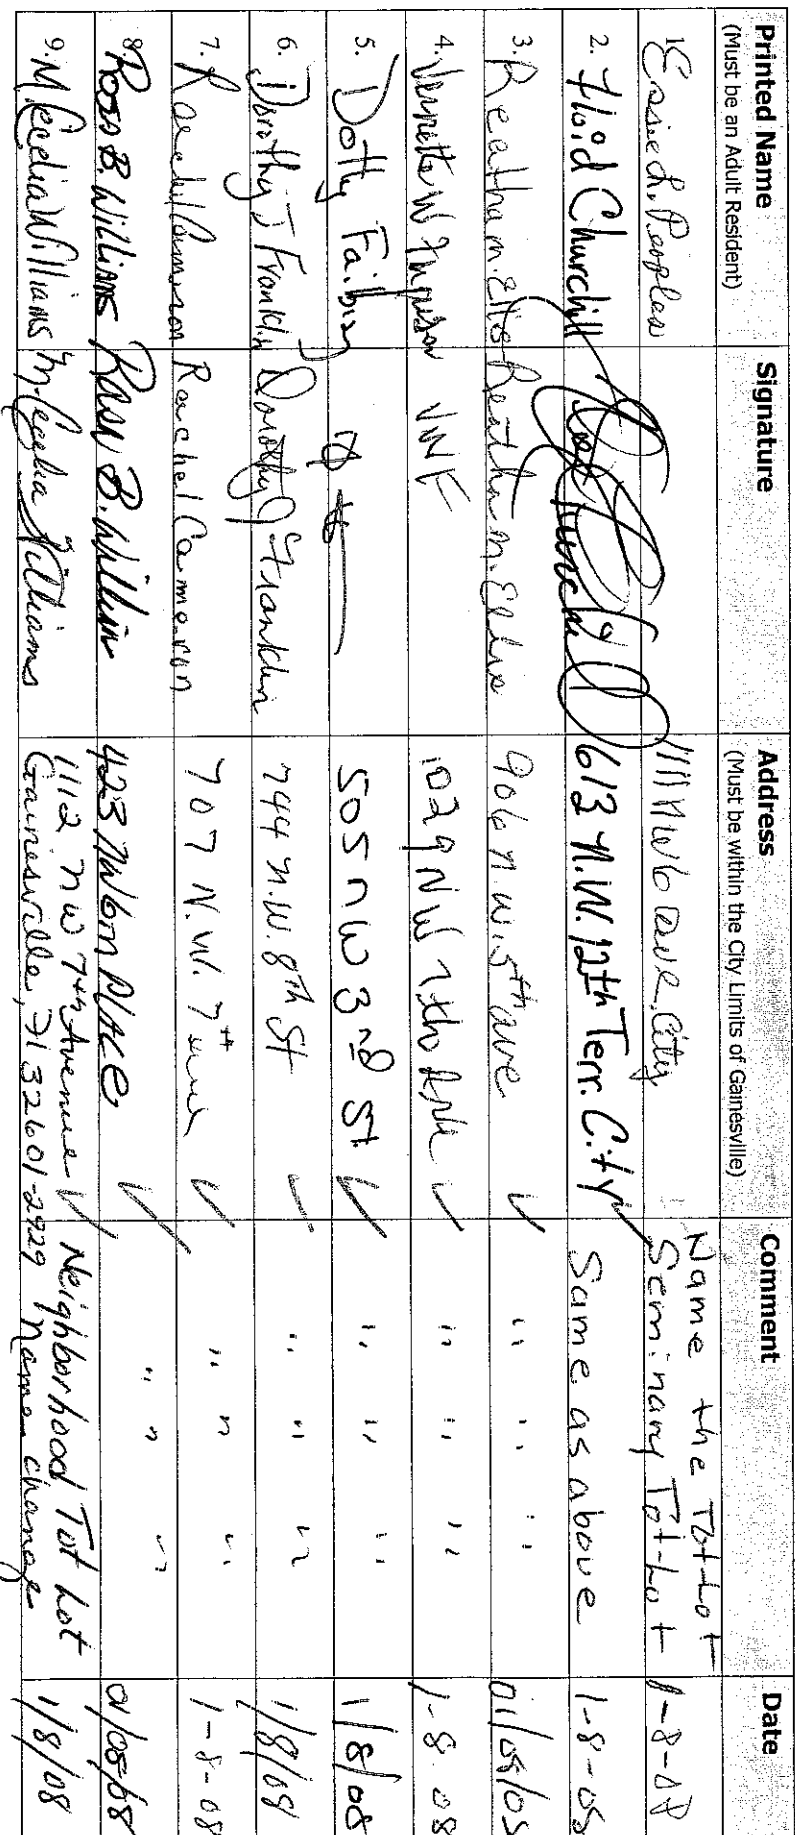 Printed Name
(Must be an Adult Resident)
Signature
Address
(Must be within the City Limits of Gainesville)
Comment
Date
1. Essie L. Peoples
1111 NW 6 ave. City
Name the Tot-Lot
Seminary Tot-Lot
1-8-08
2. Floid Churchill
613 N.W. 12th Terr. City ✓
Same as above
1-8-08
3. Reatha m. Ellis
Reatha m. Ellis
906 n.w. 5th ave ✓
" " "
01/08/08
4. W
VWF
1029 NW 7th ✓
" " "
1-8-08
5. Dotty Faibisy
505 nw 3rd St ✓
" " "
1/8/08
6. Dorothy J Franklin
Dorothy J Franklin
744 n.w. 8th St ✓
" " "
1/8/08
7. Rachel Cameron
Rachel Cameron
707 N.W. 7th ave ✓
" " "
1-8-08
8. Ross B. Williams
Ross B. Williams
423 NW 6th PLACE ✓
" " "
01/08/08
9. M. Cecelia Williams
M. Cecelia Williams
1112 nw 7th Avenue ✓
Gainesville, Fl 32601-2929
Neighborhood Tot Lot
name change
1/8/08